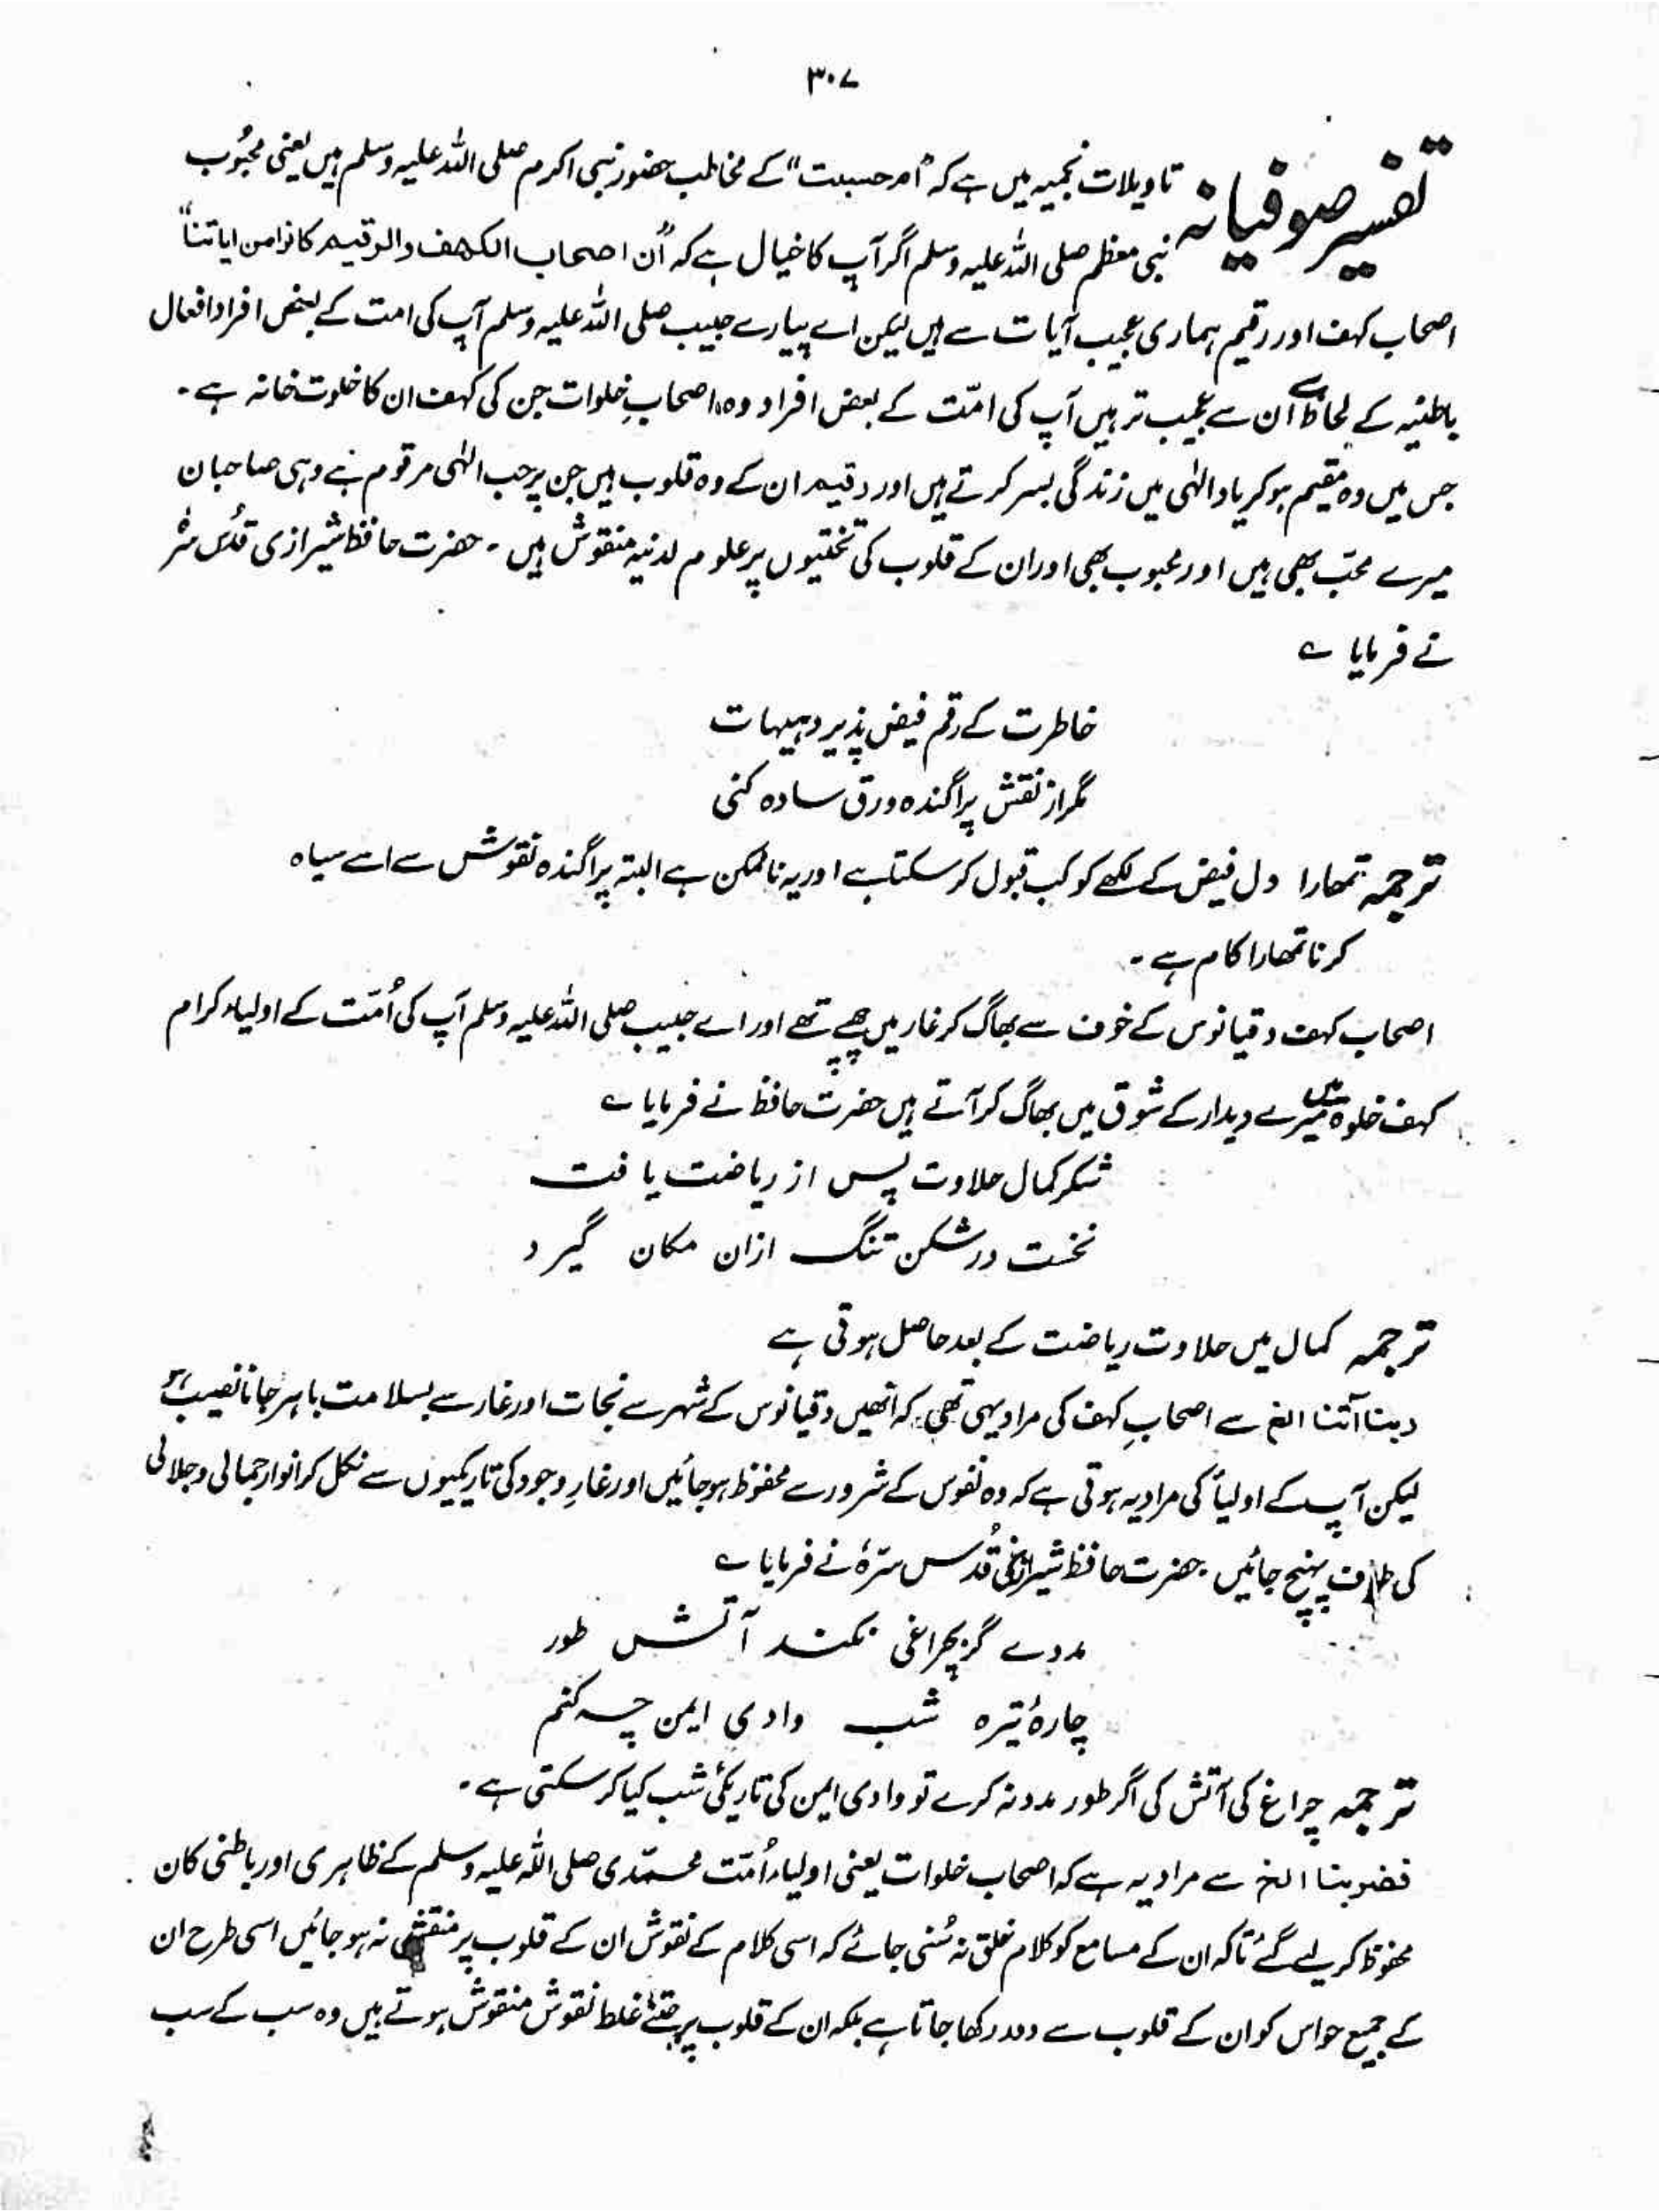 ۳۰۷
تفسیر صوفیانہ تاویلات نجمیہ میں ہے کہ "ام حسبت" کے مخاطب حضور نبی اکرم صلی اللہ علیہ وسلم ہیں یعنی محبُوب
نبی معظم صلی اللہ علیہ وسلم اگر آپ کا خیال ہے کہ "ان اصحاب الکھف والرقیم کانوا من ایاتنا"
اصحاب کہف اور رقیم ہماری عجیب آیات سے ہیں لیکن اے پیارے حبیب صلی اللہ علیہ وسلم آپ کی امت کے بعض افراد افعال
باطنیہ کے لحاظ سے اُن سے عجیب تر ہیں آپ کی امّت کے بعض افراد وہ اصحابِ خلوات جن کی کہف ان کا خلوت خانہ ہے۔
جس میں وہ مقیم ہو کر یاد الٰہی میں زندگی بسر کرتے ہیں اور رقیم ان کے وہ قلوب ہیں جن پر حب الٰہی مرقوم ہے وہی صاحبان
میرے محبّ بھی ہیں اور محبوب بھی اور ان کے قلوب کی تختیوں پر علوم لدنیہ منقوش ہیں۔ حضرت حافظ شیرازی قدُس سرُہ
نے فرمایا ے
خاطرت کے رقم فیض پذیرد ہیہات
مگر از نقش پراگندہ ورق سادہ کنی
ترجمہ تمھارا دل فیض کے لکھے کو کب قبول کر سکتا ہے اور یہ ناممکن ہے البتہ پراگندہ نقوش سے اسے سیاہ
کرنا تمھارا کام ہے۔
اصحاب کہف دقیانوس کے خوف سے بھاگ کر غار میں چھپے تھے اور اے حبیب صلی اللہ علیہ وسلم آپ کی اُمّت کے اولیاء کرام
کہف خلوۃ میں میرے دیدار کے شوق میں بھاگ کر آتے ہیں حضرت حافظ نے فرمایا ے
شکر کمال حلاوت پس از ریاضت یافت
نخست در شکن تنگ ازان مکان گیرد
ترجمہ کمال میں حلاوت ریاضت کے بعد حاصل ہوتی ہے
ربنا آتنا الخ سے اصحابِ کہف کی مراد یہی تھی کہ انھیں دقیانوس کے شہر سے نجات اور غار سے بسلامت باہر جانا نصیب ہو
لیکن آپ کے اولیاُ کی مراد یہ ہوتی ہے کہ وہ نفوس کے شرور سے محفوظ ہو جائیں اور غارِ وجود کی تاریکیوں سے نکل کر انوار جمالی و جلالی
کی طرف پہنچ جائیں۔ حضرت حافظ شیرازی قُدس سرّہٗ نے فرمایا ے
مددے گر بچراغی نکند آتش طور
چارۂ تیرہ شب وادی ایمن چہ کنم
ترجمہ چراغ کی آتش کی اگر طور مدد نہ کرے تو وادی ایمن کی تاریکیٔ شب کیا کر سکتی ہے۔
فضربنا الخ سے مراد یہ ہے کہ اصحاب خلوات یعنی اولیاء اُمّت محمّدی صلی اللہ علیہ وسلم کے ظاہری اور باطنی کان
محفوظ کر لیے گئے تاکہ ان کے مسامع کو کلام خلق نہ سُنی جائے کہ اسی کلام کے نقوش ان کے قلوب پر منقش نہ ہو جائیں اسی طرح ان
کے جمیع حواس کو ان کے قلوب سے دور رکھا جاتا ہے بلکہ ان کے قلوب پر جتنے غلط نقوش منقوش ہوتے ہیں وہ سب کے سب